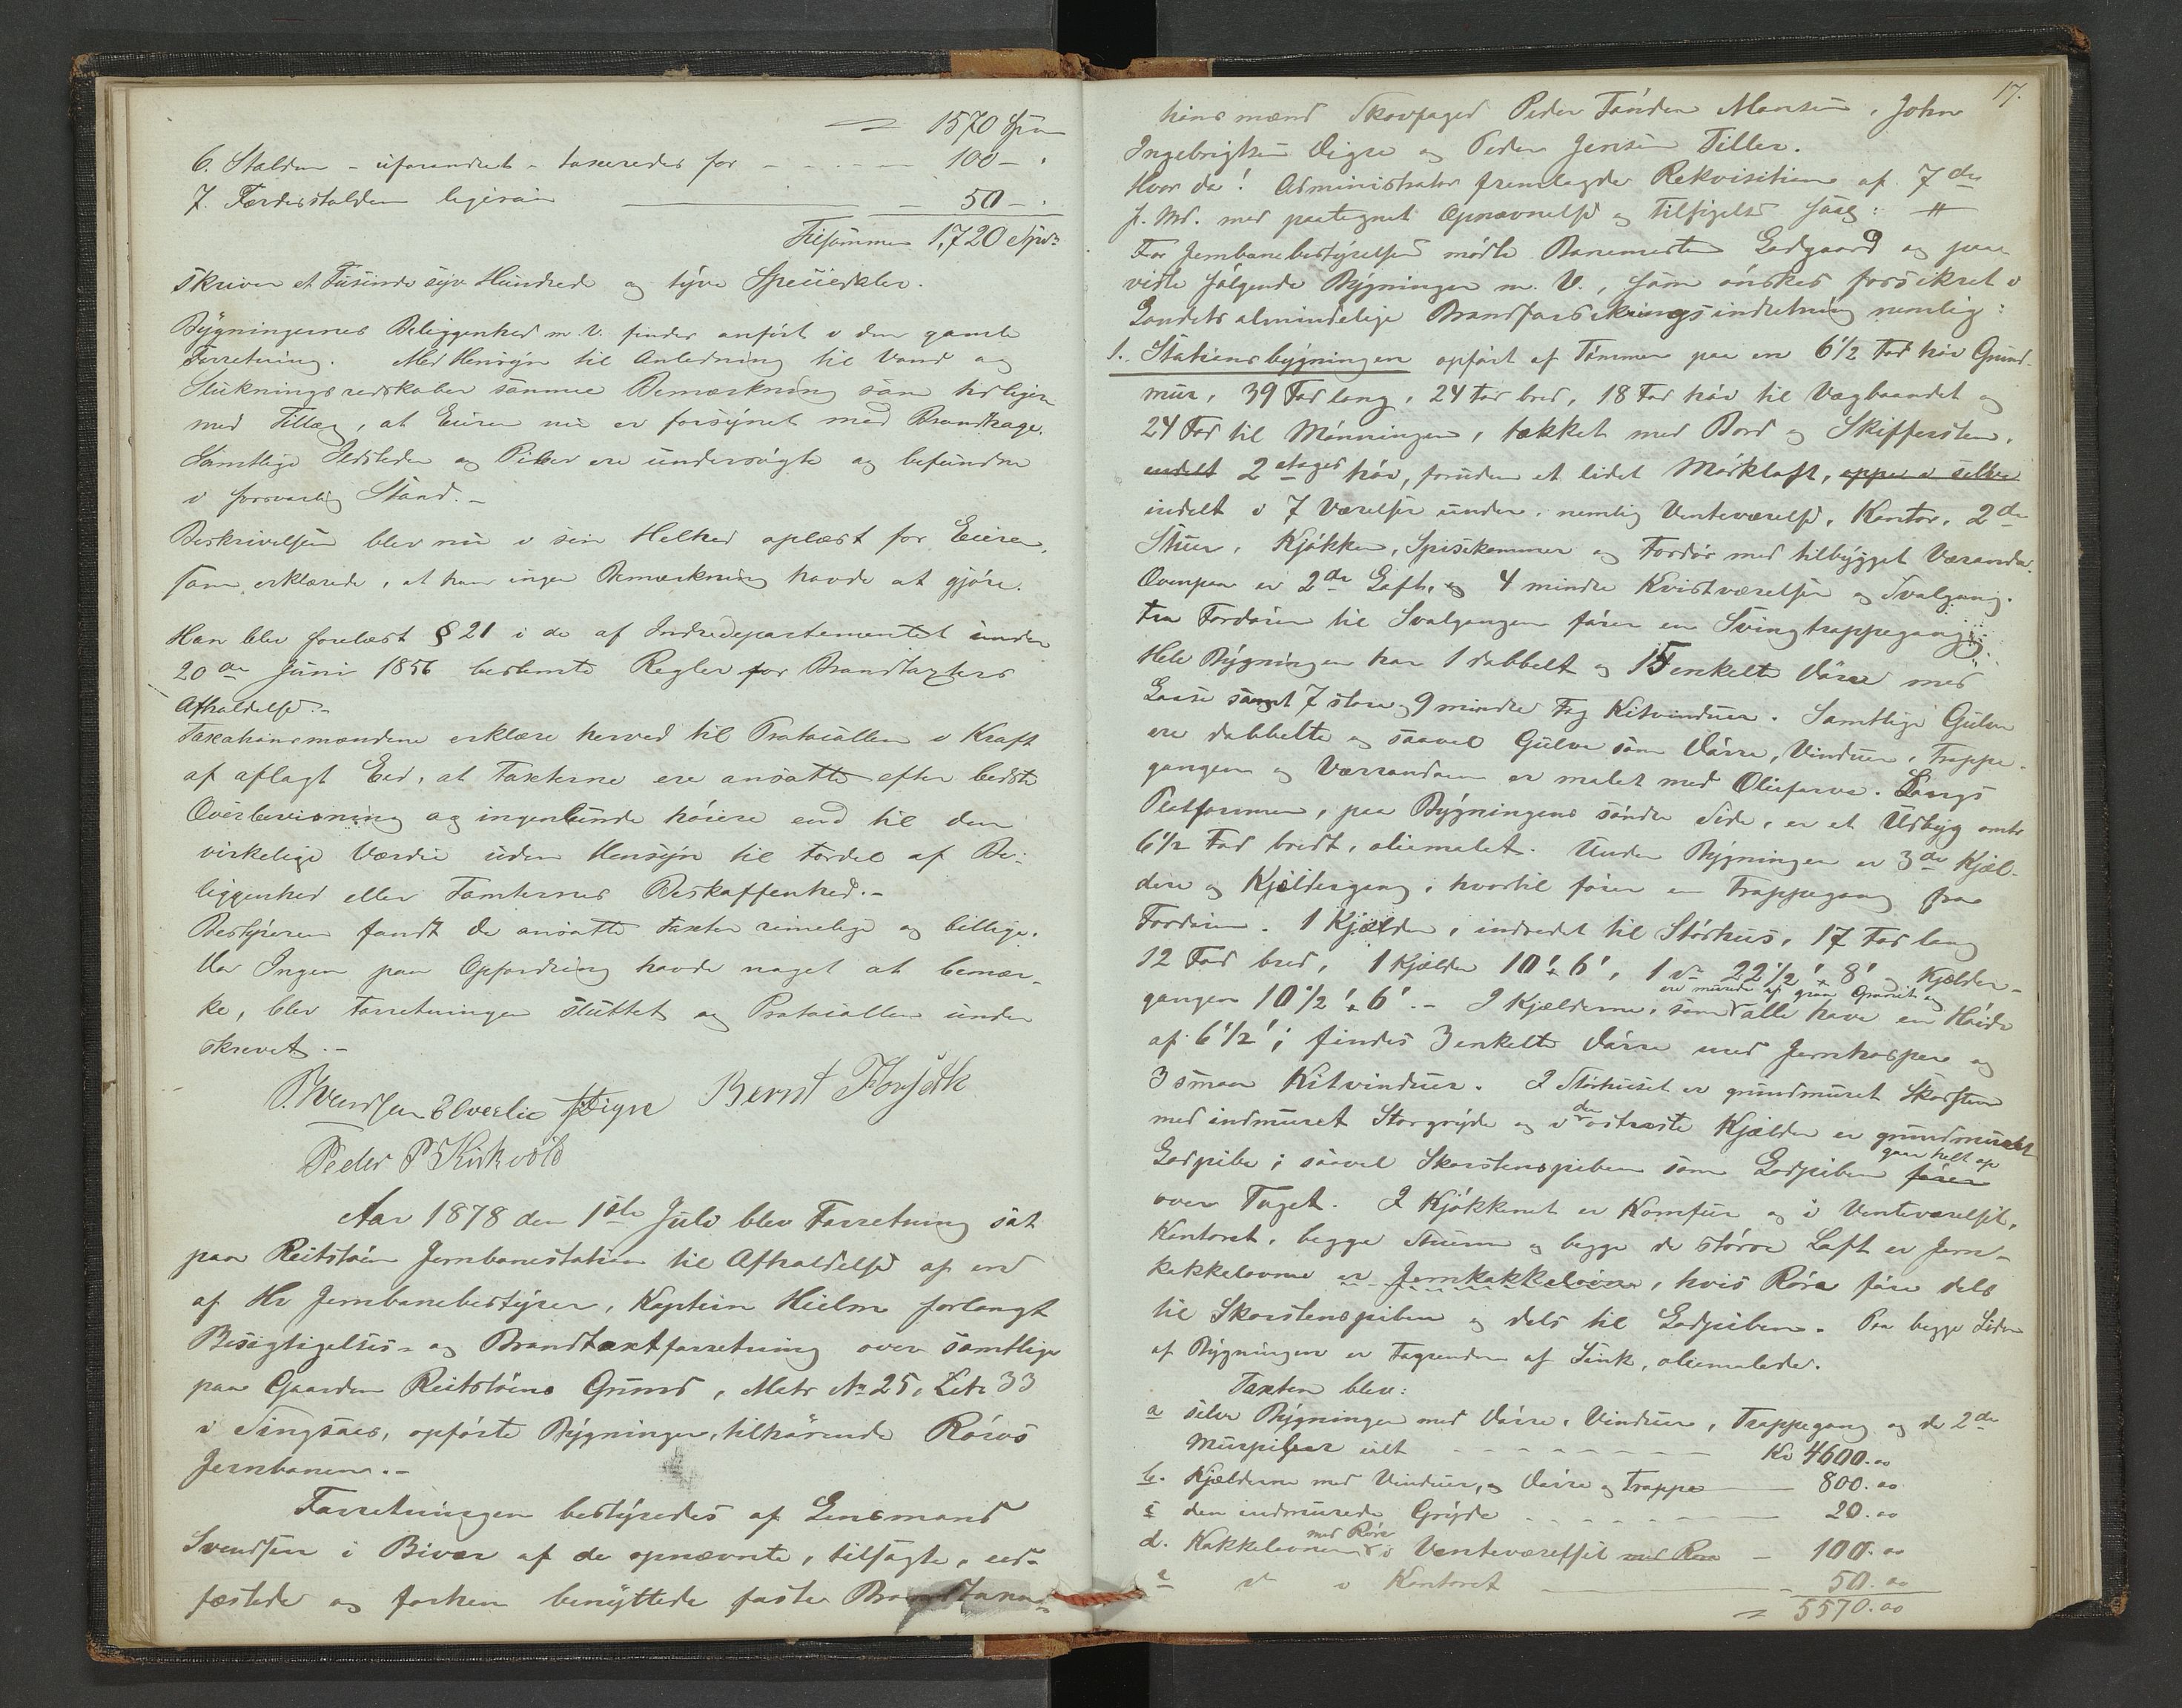 = 1570 Spd
6. Stalden - uforandret - taxeredes for - - - 100 - "
7. Færdesstalden ligesaa 50 - "
Tilsammen 1,720 Spd.
skriver et Tusinde syv Hundrede og tyve Speciedaler.
Bygningernes Beliggenhed m. v. findes anført i den gamle
Forretning. Med Hensyn til Anledning til Vand og
Slukningsredskaber samme Bemærkning som tidligere
med Tillæg, at Eieren nu er forsynet med Brandhage.
Samtlige Ildsteder og Piber ere undersøgte og befundne
i forsvarlig Stand. -
Beskrivelsen blev nu i sin Helhed oplæst for Eieren,
som erklærede, at han ingen Bemærkning havde at gjøre.
Han blev forelæst § 21 i de af Indredepartementet under
20de Juni 1856 bestemte Regler for Brandtaxters
Afholdelse. -
Taxationsmændene erklære herved til Protocollen i Kraft
af aflagt Eed, at Taxterne ere ansatte efter bedste
Overbevisning og ingenlunde høiere end til den
virkelige Værdie uden Hensyn til Fordel af Be-
liggenhed eller Tomternes Beskaffenhed. -
Bestyreren fandt de ansatte Taxter rimelige og billige.
Da Ingen paa Opfordring havde noget at bemær-
ke, blev Forretningen sluttet og Protocollen under
skrevet. -
Svendsen Elverlie JDigre Bernt Forsæth
Peder P Kirkvold
Aar 1878 den 1ste Juli blev Forretning sat
paa Reitstøen Jernbanestation til Afholdelse af en
af Hr Jernbanebestyrer, Kaptein Hielm forlangt
Besigtigelses- og Brandtaxtforretning over samtlige
paa Gaarden Reitstøens Grund, Matr No 25, Lb. 33
i Singsaas, opførte Bygninger, tilhørende Røros
Jernbanen. -
Forretningen bestyredes af Lensmand
Svendsen i Bivær af de opnævnte, tilsagte, eed-
fæstede og forhen benyttede faste Brandtaxa-
17.
tionsmænd Skovfoged Peder Tønder Monsen, John
Ingebrigtsen Digre og Peder Jensen Tiller.
Hvor da! Administrator fremlagde Rekvisition af 7de
f. Md. med paategnet Opnævnelse og Tilsigelse saal: #
For Jernbanebestyrelsen mødte Banemester Lodgaard og paa
viste følgende Bygninger m. V., som ønskes forsikret i
Landets almindelige Brandforsikringsindretning nemlig:
1. Stationsbygningen opført af Tømmer paa en 6 1/2 Fod høi Grund-
mur, 39 Fod lang, 24 Fod bred, 18 Fod høi til Vægbaandet og
24 Fod til Mønningen, tækket med Bord og Skiffersten,
indelt 2 etages høi, foruden et lidet Mørkloft, oppe i selve
indelt i 7 Værelser under, nemlig Venteværelse, Kontor, 2de
Stuer, Kjøkken, Spisekammer og Fordør med tilbygget Veranda.
Ovenpaa er 2de Loft, og 4 mindre Kvistværelser og Svalgang.
Fra Fordøren til Svalgangen fører en Svingtrappegang.
Hele Bygningen har 1 dobbelt og 15 enkelte Døre med
Laase samt 7 store og 9 mindre Fag Kitvinduer. Samtlige Gulve
ere dobbelte og saavel Gulve som Døre, Vinduer, Trappe-
gangen og Verandaen er malet med Oliefarve. Langs
Platformen, paa Bygningens søndre Side, er et Udbyg omtr
6 1/2 Fod bredt, oliemalet. Under Bygningen er 3de Kjæl-
dere og Kjældergang, hvortil fører en Trappegang fra
Fordøren. 1 Kjælder, indredet til Størhus, 17 Fod lang
12 Fod bred, 1 Kjælder 10' + 6', 1 do 22 1/2' + 8' og Kjælder-
gangen 10 1/2' + 6'. - I Kjælderne, som ere murede af graa Granit og alle have en Høide
af 6 1/2', findes 3 enkelte Døre med Jernhasper og
3 smaa Kitvinduer. I Størhuset er grundmuret Skorsten
med indmuret Storgryde og i den østreste Kjælder er grundmuret
Lodpibe; saavel Skorstenspiben som Lodpiben fører gaar helt op
over Taget. I Kjøkkenet er Komfur og i Venteværelset,
Kontoret, begge Stuer og begge de større Loft er Jern-
kakkelovne er Jernkakkelovne, hvis Røre føre dels
til Skorstenspiben og dels til Lodpiben. Paa begge Sider
af Bygningen er Tagrender af Sink, oliemalede.
Taxten blev:
a selve Bygningen med Døre, Vinduer, Trappegang og de 2de
Murpiber ialt - - - Kr 4600.00
b. Kjælderne med Vinduer, og Døre og Trappe 800.00
c den indmurede Gryde - - - 20.00
d. Kakkelovnen med Røre i Venteværelset med Røre - 100.00
e do i Kontoret 50.00
= 5570.00